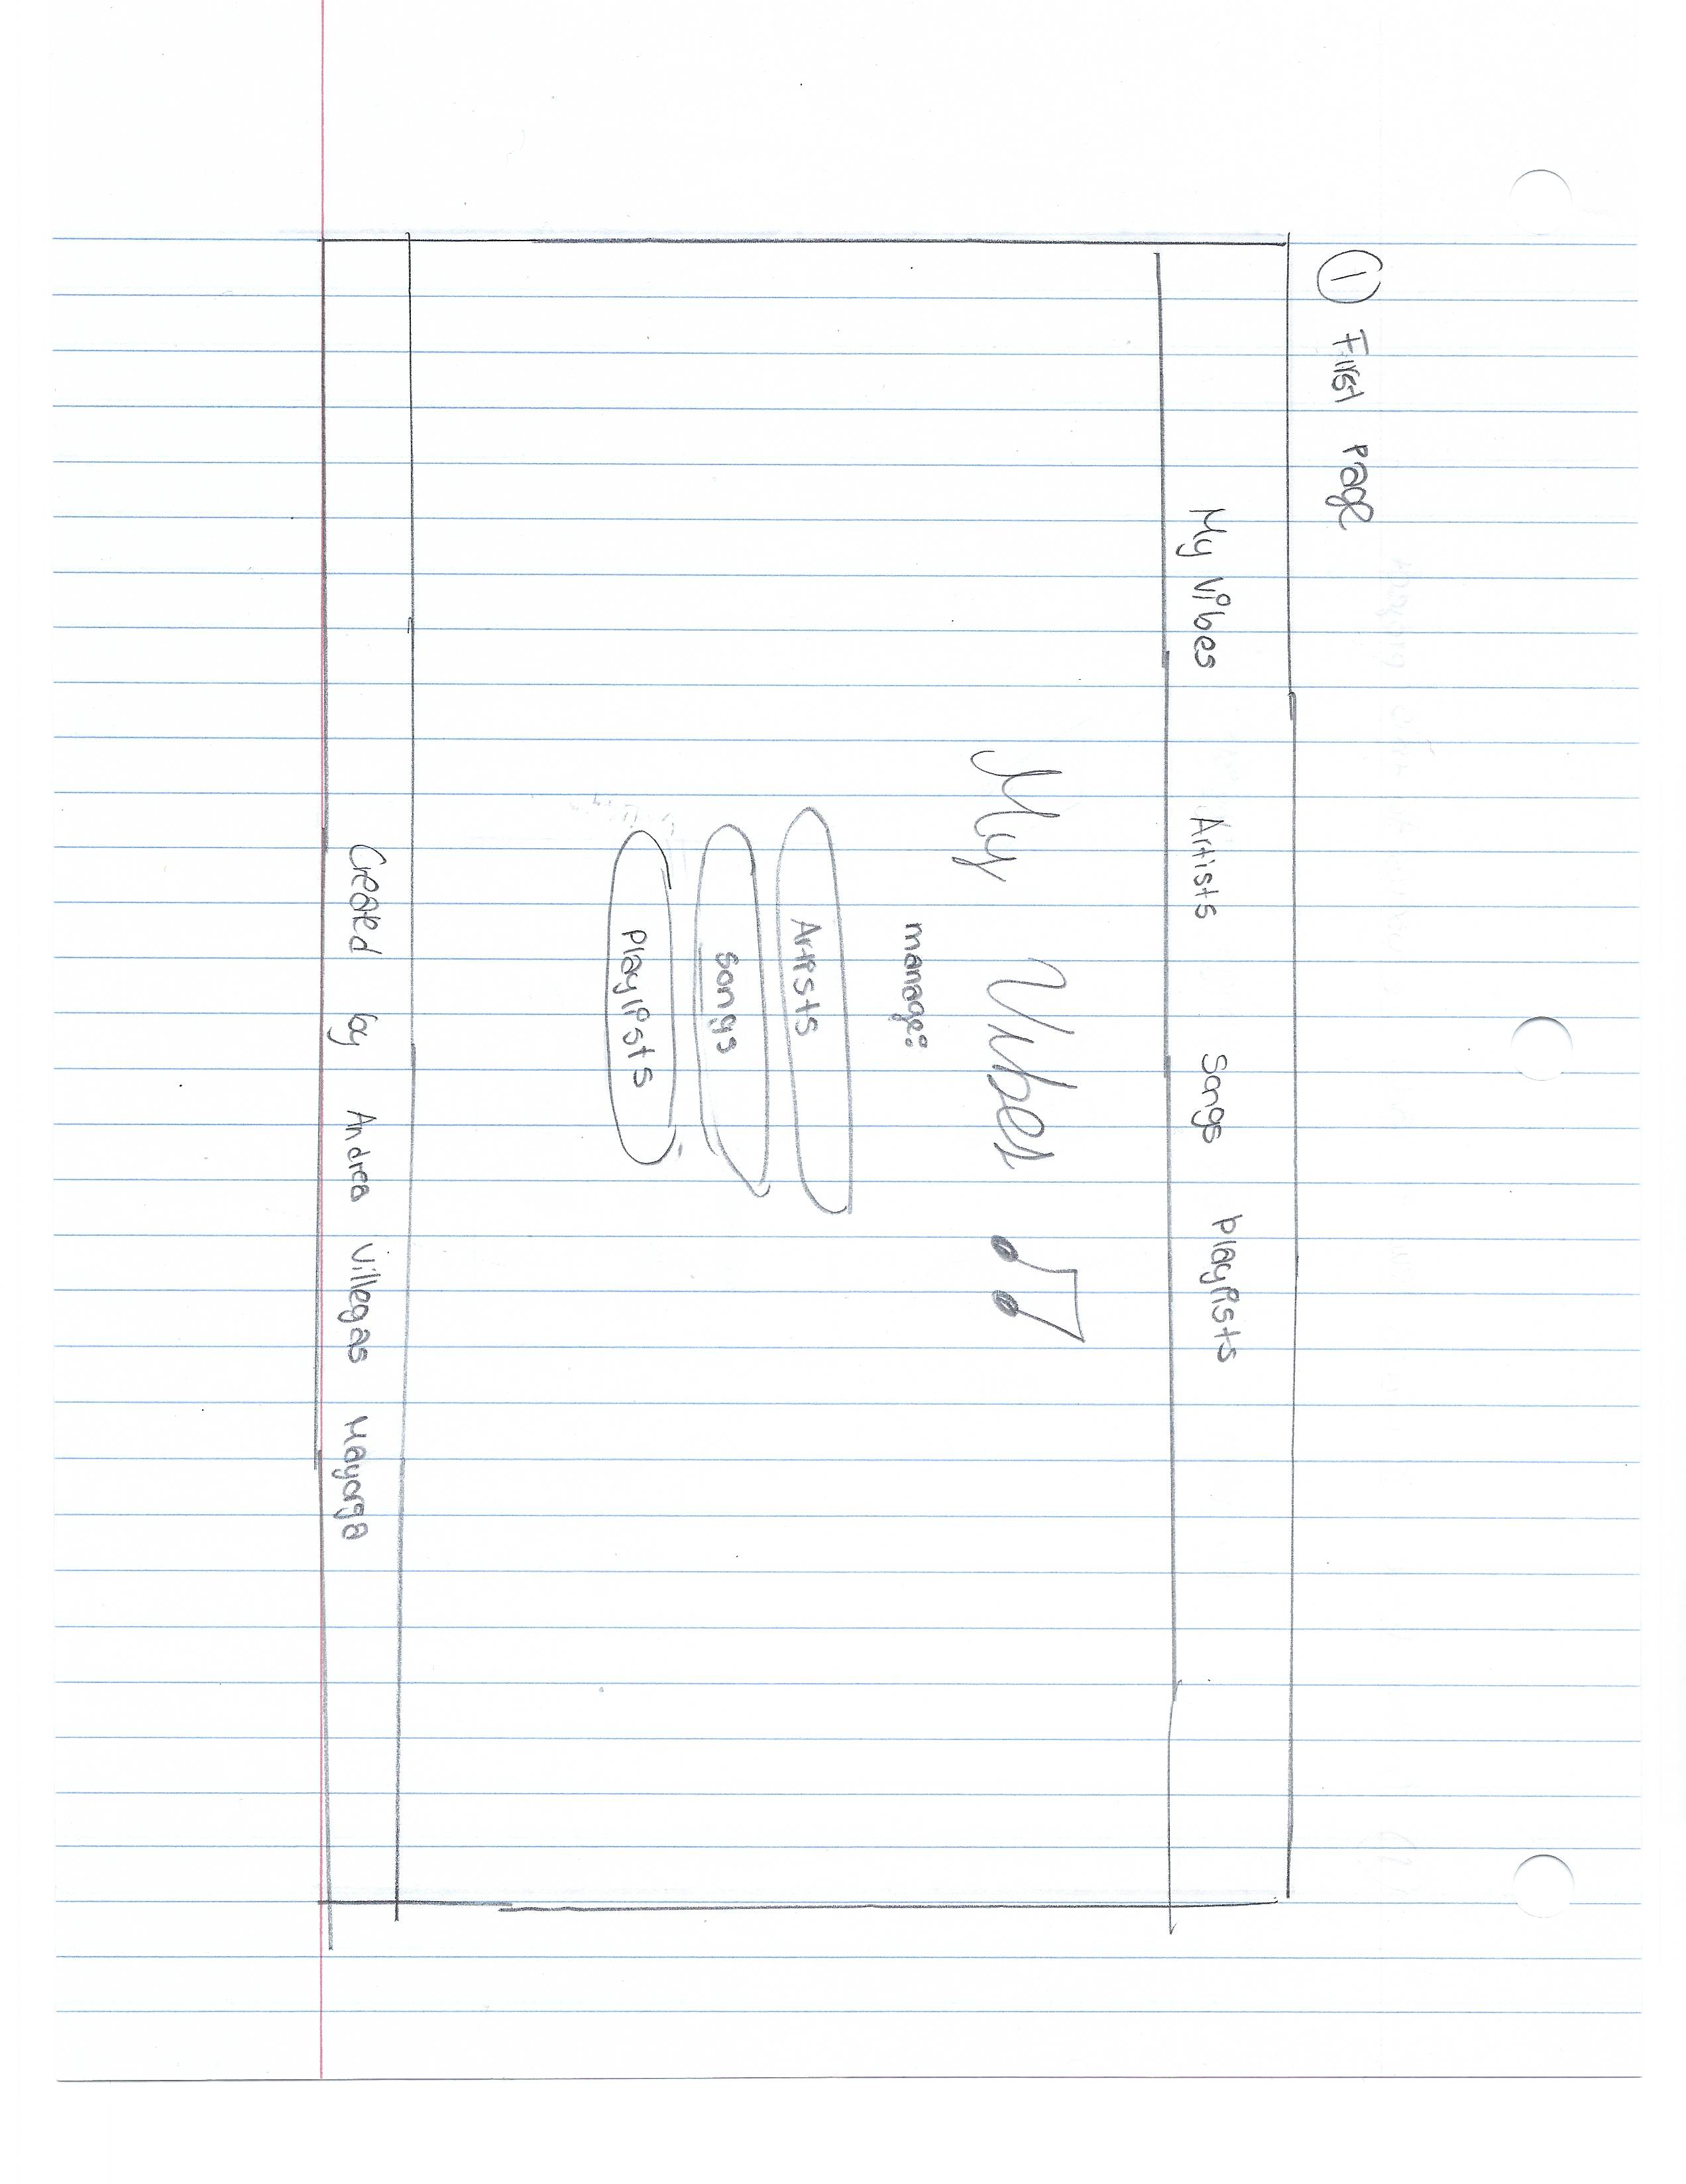 1 First page
My Vibes Artists Songs Playlists
My Vibes
manage:
Artists
Songs
Playlists
Created by Andrea Villegas Mayorga